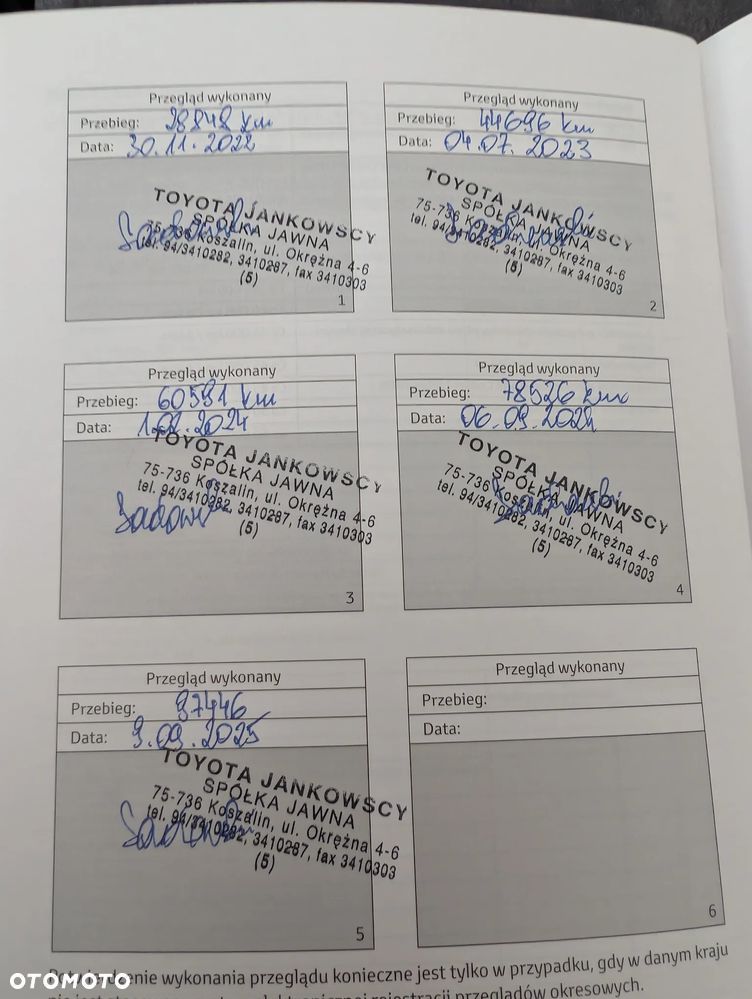 Przegląd wykonany
Przebieg: 28848 km
Data: 30.11.2022
TOYOTA JANKOWSCY
SPÓŁKA JAWNA
75-736 Koszalin, ul. Okrężna 4-6
tel. 94/3410282, 3410287, fax 3410303
(5)
1
Przegląd wykonany
Przebieg: 44696 km
Data: 04.07.2023
TOYOTA JANKOWSCY
SPÓŁKA JAWNA
75-736 Koszalin, ul. Okrężna 4-6
tel. 94/3410282, 3410287, fax 3410303
(5)
2
Przegląd wykonany
Przebieg: 60581 km
Data: 1.02.2024
TOYOTA JANKOWSCY
SPÓŁKA JAWNA
75-736 Koszalin, ul. Okrężna 4-6
tel. 94/3410282, 3410287, fax 3410303
(5)
3
Przegląd wykonany
Przebieg: 78526 km
Data: 06.09.2024
TOYOTA JANKOWSCY
SPÓŁKA JAWNA
75-736 Koszalin, ul. Okrężna 4-6
tel. 94/3410282, 3410287, fax 3410303
(5)
4
Przegląd wykonany
Przebieg: 97446
Data: 9.09.2025
TOYOTA JANKOWSCY
SPÓŁKA JAWNA
75-736 Koszalin, ul. Okrężna 4-6
tel. 94/3410282, 3410287, fax 3410303
(5)
5
Przegląd wykonany
Przebieg:
Data:
6
wykonania przeglądu konieczne jest tylko w przypadku, gdy w danym kraju
rejestracji przeglądów okresowych.
OTOMOTO